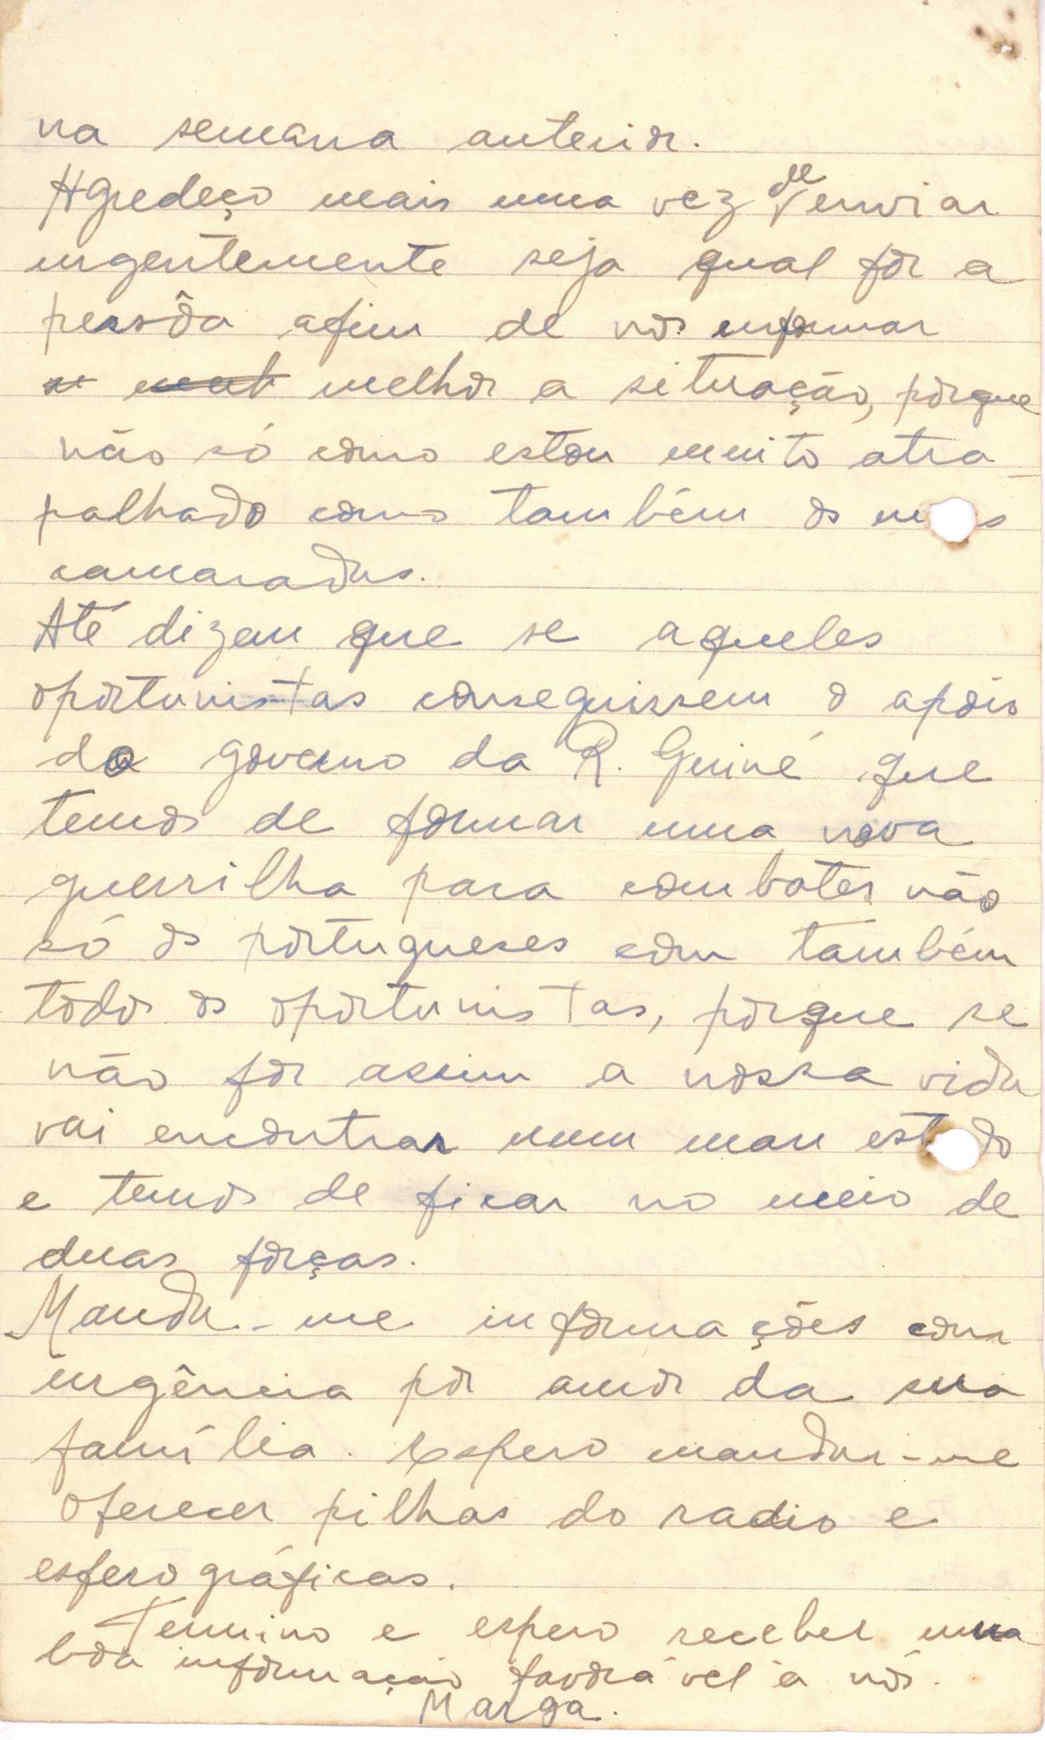 na semana anterior.
Agredeço mais uma vez de enviar
urgentemente seja qual fôr a
pessôa afim de nos informar
melhor a situação, porque
não só como estou muito atra-
palhado como também os meus
camaradas.
Até dizem que se aqueles
oportunistas conseguissem o apoio
do governo da R. Guiné que
temos de formar uma nova
guerrilha para combater não
só os portugueses com também
todos os oportunistas, porque se
não fôr assim a nossa vida
vai encontrar num mau estado
e temos de ficar no meio de
duas forças.
Manda-me informações com
urgência por amor da sua
família. Espero mandar-me
oferecer pilhas do radio e
esferográficas.
Termino e espero receber uma
boa informação favorável a nós.
Marga.